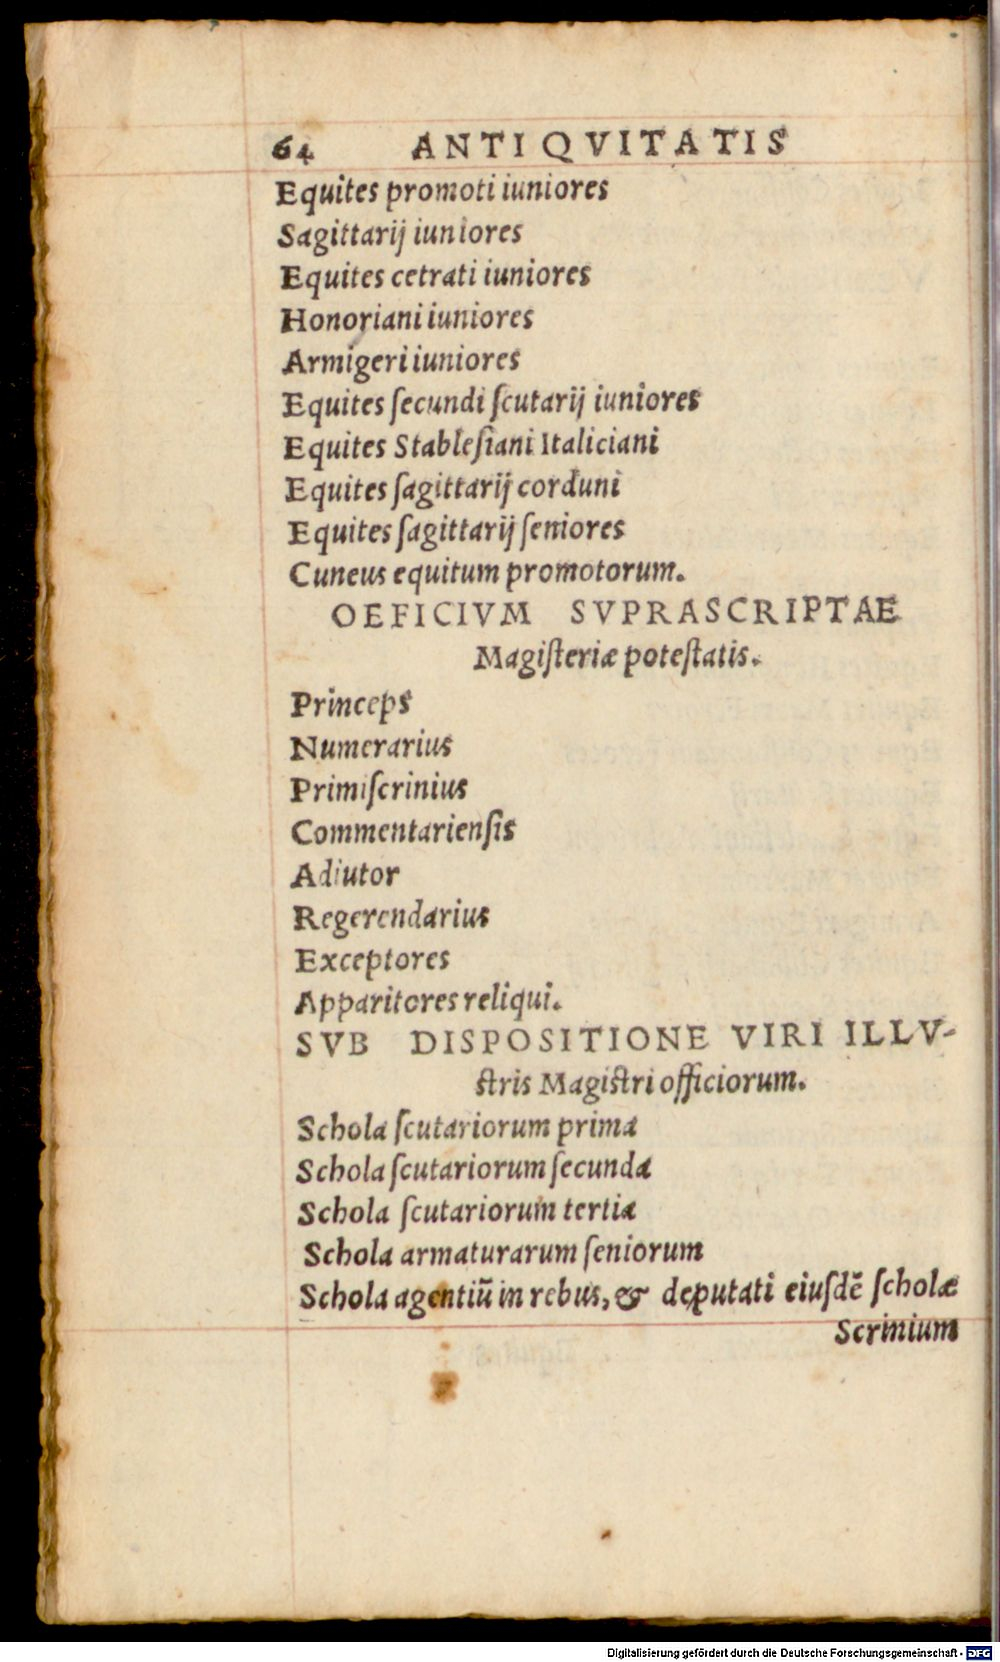 64 ANTIQVITATIS
Equites promoti iuniores
Sagittarij iuniores
Equites cetrati iuniores
Honoriani iuniores
Armigeri iuniores
Equites ſecundi ſcutarij iuniores
Equites Stableſiani Italiciani
Equites ſagittarij corduni
Equites ſagittarij ſeniores
Cuneus equitum promotorum.
OEFICIVM SVPRASCRIPTAE
Magiſteriæ poteſtatis.
Princeps
Numerarius
Primiſcrinius
Commentarienſis
Adiutor
Regerendarius
Exceptores
Apparitores reliqui.
SVB DISPOSITIONE VIRI ILLV-
ſtris Magiſtri officiorum.
Schola ſcutariorum prima
Schola ſcutariorum ſecunda
Schola ſcutariorum tertia
Schola armaturarum ſeniorum
Schola agentiũ in rebus, & deputati eiuſdẽ ſcholæ
Scrinium
Digitalisierung gefördert durch die Deutsche Forschungsgemeinschaft - DFG